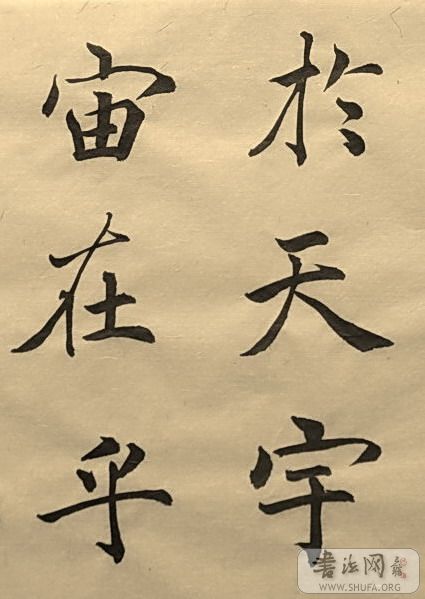 於天宇
宙在乎
書法网
WWW.SHUFA.ORG